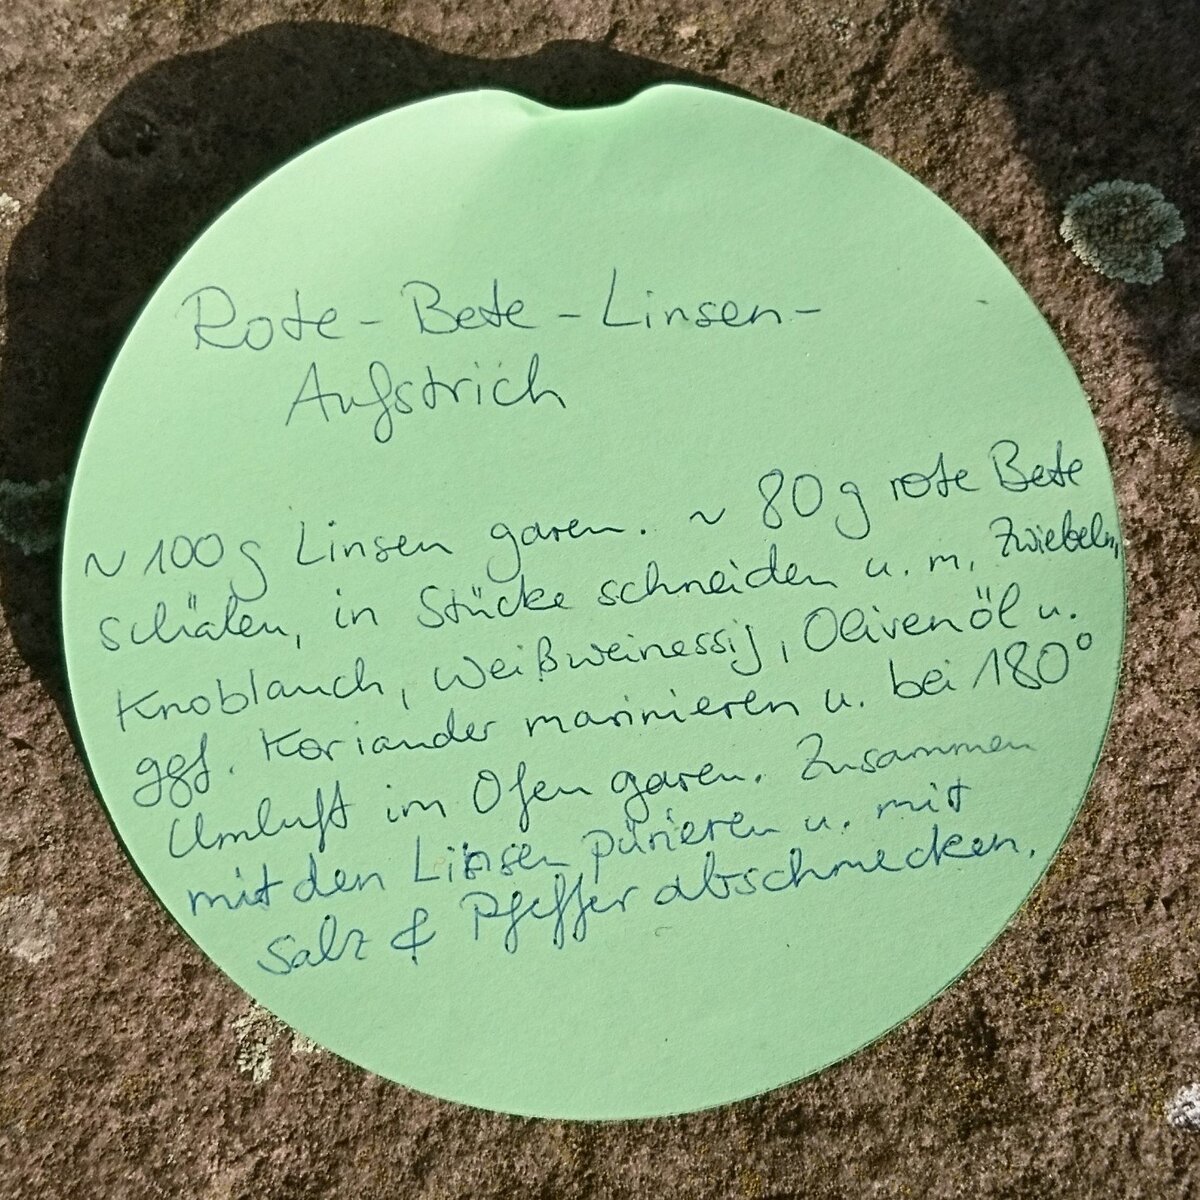 Rote-Bete-Linsen-
Aufstrich
~ 100g Linsen garen. ~ 80g rote Bete
schälen, in Stücke schneiden u. m. Zwiebeln,
Knoblauch, Weißweinessig, Olivenöl u.
ggf. Koriander marinieren u. bei 180°
Umluft im Ofen garen. Zusammen
mit den Linsen pürieren u. mit
Salz & Pfeffer abschmecken.